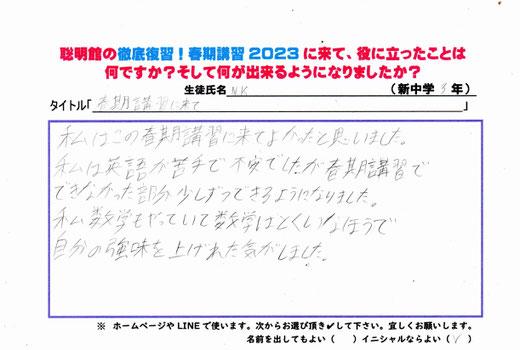 聡明館の徹底復習！春期講習2023に来て、役に立ったことは
何ですか？そして何が出来るようになりましたか？
生徒氏名 NK （新中学 3 年）
タイトル「春期講習に来て」
私はこの春期講習に来てよかったと思いました。
私は英語が苦手で不安でしたが春期講習で
できなかった部分少しずつできるようになりました。
私数学もやっていて数学はとくいなほうで
自分の強味を上げれた気がしました。
※ ホームページやLINEで使います。次からお選び頂き✔して下さい。宜しくお願いします。
名前を出してもよい（　）イニシャルならよい（✓）